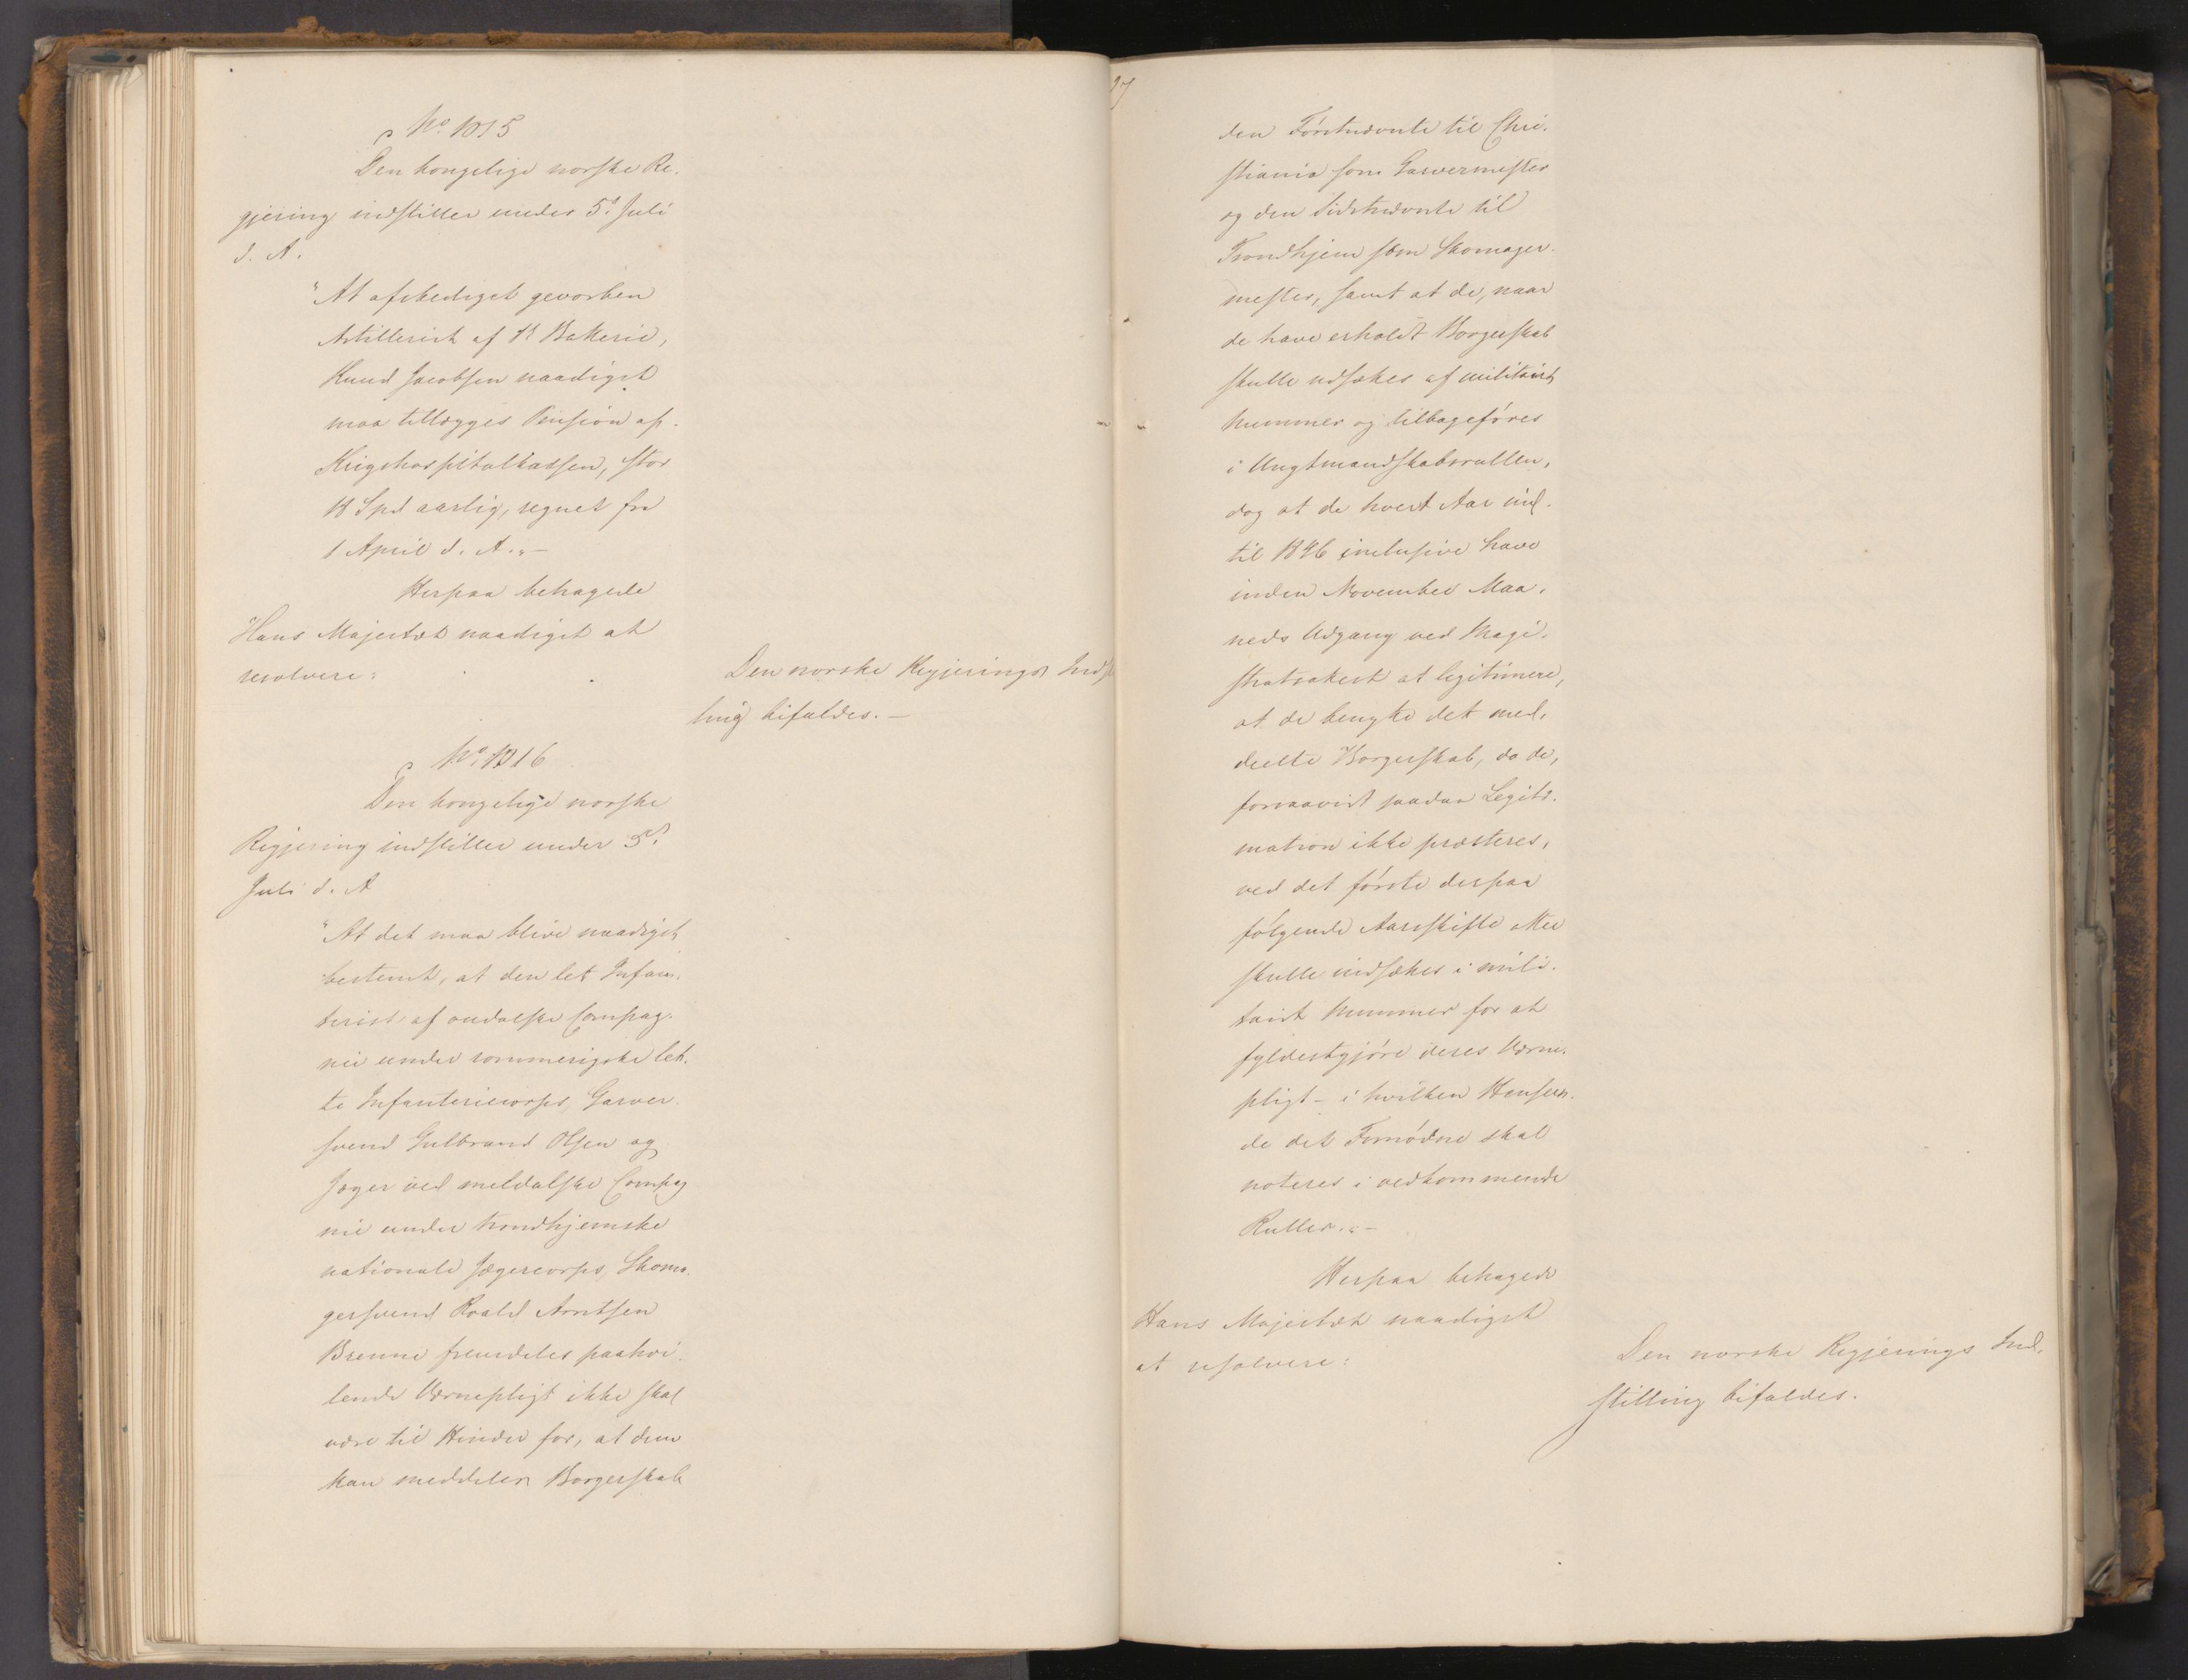 No 1015
Den kongelige norske Re-
gjering indstiller under 5te Juli
d. A.
"At afskediget gevorben
Artillerist af Batterie,
Knud Jacobsen naadigst
maa tillægges Pension af
Krigshospitalkassen, stor
18 Spd aarlig, regnet fra
1 April d. A." —
Herpaa behagede
Hans Majestæt naadigst at
resolvere:
Den norske Regjerings Indst
ling bifaldes. —
No 1016
Den kongelige norske
Regjering indstiller under 5te
Juli d. A
"At det maa blive naadigst
bestemt, at den let Infan-
terist af oudalske Compag-
nie under rommerigske let-
te Infanteriecorps, Garver-
svend Gulbrand Olsen og
Jæger ved meldalske Compag
nie under trondhjemske
nationale Jægercorps, Skoma-
gersvend Roald Arntsen
Brenne fremdeles paahvi-
lende Værnepligt ikke skal
være til Hinder for, at dem
kan meddeles Borgerskab
den Førstnævnte til Chri-
stiania som Garvermester
og den Sidstnævnte til
Trondhjem som Skomager-
mester, samt at de, naar
de have erholdt Borgerskab
skulle udsættes af militairt
Nummer og tilbageføres
i Ungtmandskabsrullen,
dog at de hvert Aar ind-
til 1846 inclusive have
inden November Maa-
neds Udgang ved Magi-
stratsattest at legitimere,
at de benytte det med-
deelte Borgerskab, da de,
forsaavidt saadan Legiti-
mation ikke præsteres,
ved det første derpaa
følgende Aarsskifte atter
skulle indsættes i mili-
tairt Nummer for at
fyldestgjøre deres Værne-
pligt – i hvilken Henseen-
de det Fornødne skal
noteres i vedkommende
Ruller." —
Herpaa behagede
Hans Majestæt naadigst
at resolvere:
Den norske Regjerings Ind-
stilling bifaldes.